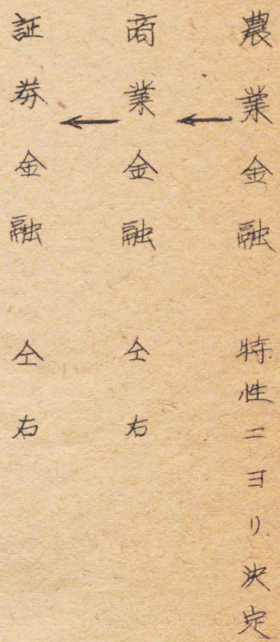 農業金融 特性ニヨリ決定
商業金融 仝右
証券金融 仝右